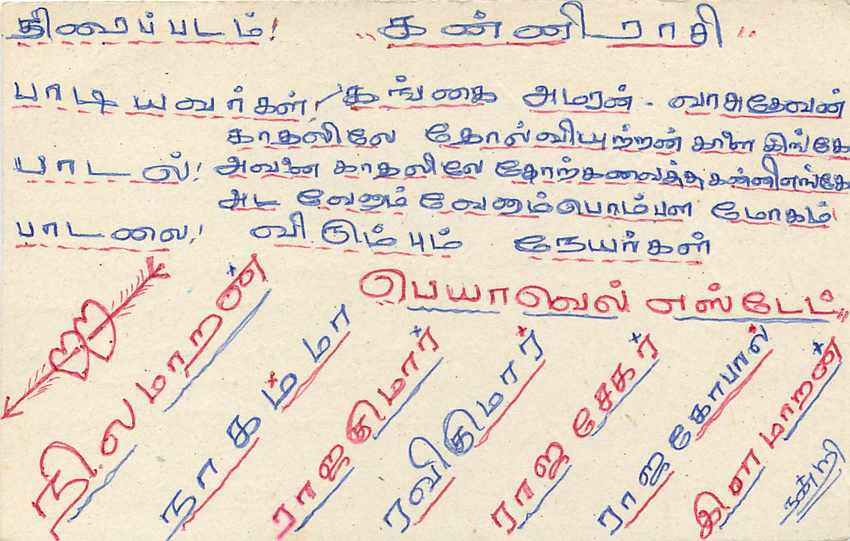 திரைப்படம்! ,,கன்னிராசி"
பாடியவர்கள்! கங்கை அமரன் - வாசுதேவன்
காதலிலே தோல்வியுற்றான் காளை இங்கே
பாடல்! அவனை காதலிலே தோற்கவைத்த கன்னி எங்கே
அட வேணும் வேணும் பொம்பள மோகம்
பாடலை! விரும்பும் நேயர்கள்
பெயாவெல் எஸ்டேட்,,
நிலமாறன்
நாகம்மா
ராஜகுமார்
ரவிகுமார்
ராஜசேகர்
ராஜகோபால்
இளமாறன்
நன்றி